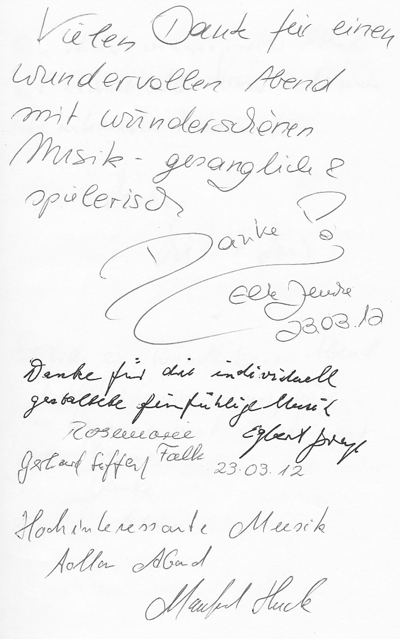 Vielen Dank für einen
wundervollen Abend
mit wünderschönen
Musik - gesanglich &
spielerisch
Danke
23.03.12
Danke für die individuell
gestaltete feinfühlige Musik
Rosemarie Egbert
Gerhard Falk 23.03.12
Hochinteressante Musik
Toller Abend
Manfred Huck